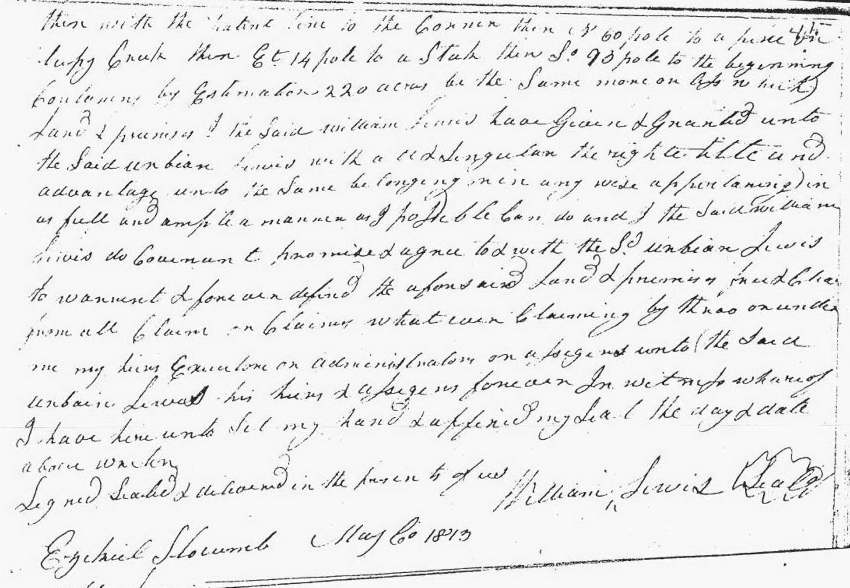 then with the patent line to the Connen then No 60 pole to a pine in
Creek then Et 14 pole to a Stak then So 93 pole to the beginning
Containing by Estimation 220 acres be the Same more on less which
Land & premises I the Said william Lewis have Given & Granted unto
the Said unbian Lewis with all & Singulan the right title and
advantage unto the Same belonging on in any wise appertaning in
as full and ample a mannen as I posseble Can do and I the Said william
Lewis do Covenant promise & agree to & with the Sd unbian Lewis
to warrent & foreven defind the afonsaid Land & premises free & Clea
from all Claim on Claims what even Claiming by thro on unde
me my heirs Executors on administratons on assegens unto the Said
unbain Lewis his heirs & assegens foreven In witness whareof
I have here unto Set my hand & affixed my Seal the day & date
above writen
Segned Sealed & delivered in the presents of us
William Lewis (Seal)
Ezekiel Slocumb May 1813